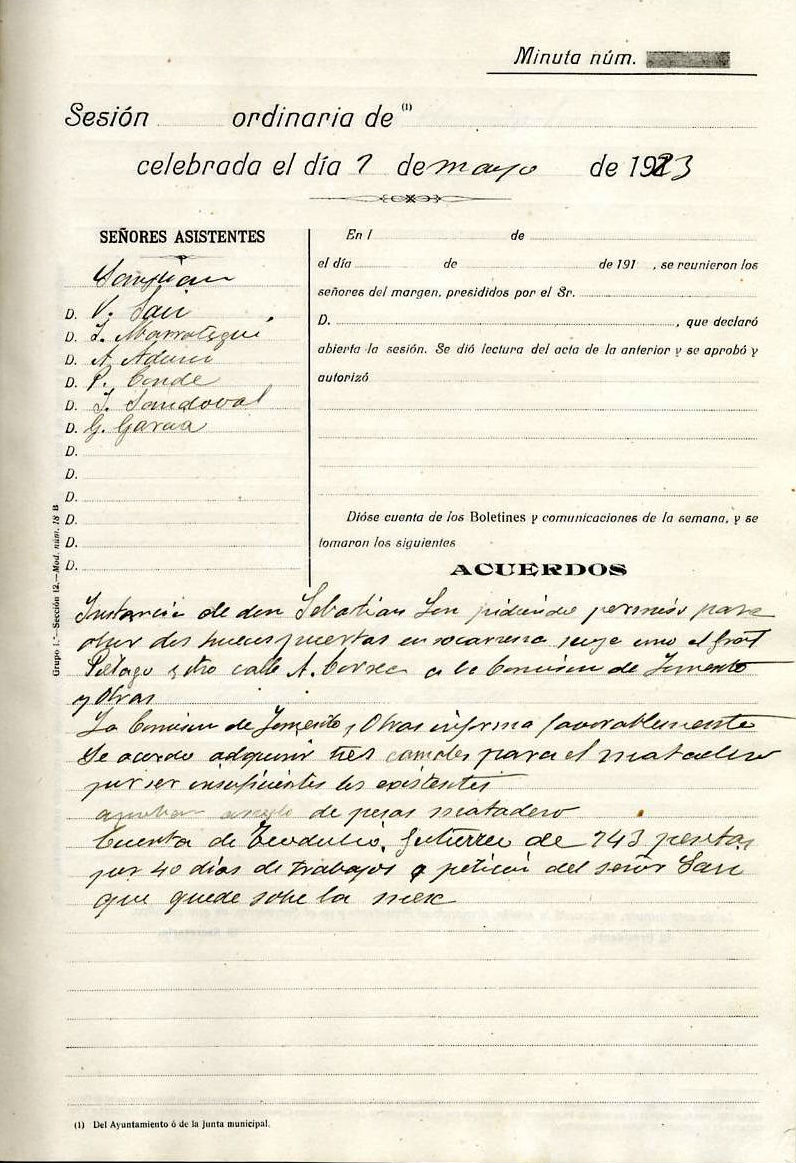 Minuta núm.
Sesión ordinaria de (1)
celebrada el día 7 de mayo de 1923
SEÑORES ASISTENTES
D. V. Sari
D. J. Marrotegui
D. A.
D. P. Conde
D. J. Sandoval
D. G. Garcia
D.
D.
D.
D.
D.
D.
En l de
el día de de 191 , se reunieron los
señores del margen, presididos por el Sr.
D. , que declaró
abierta la sesión. Se dió lectura del acta de la anterior y se aprobó y
autorizó
Dióse cuenta de los Boletines y comunicaciones de la semana, y se
tomaron los siguientes
ACUERDOS
Instancia de don Sebastian pidiendo permiso para
abrir dos huecos puertas en
calle A. a la Comision de Fomento
y Obras
La Comision de Fomento y Obras informa favorablemente
Se acordo adquirir tres para el matadero
por ser insuficientes los existentes
de pesas matadero
Cuenta de Teodulio Gutierrez de 243 pesetas
por 40 dias de trabajos a peticion del señor Sari
que quede sobre la mesa
Grupo 1.º—Sección 12.—Mod. núm. 18 B
(1) Del Ayuntamiento ó de la Junta municipal.